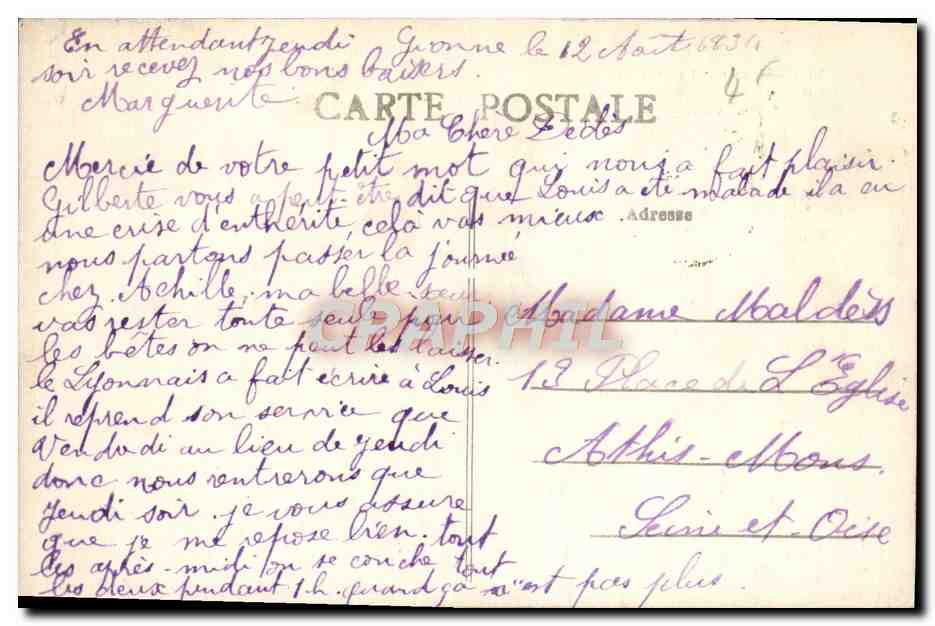 En attendant jeudi Gronne le 12 Août 1934
soir recevez nos bons baisers.
Marguerite.
4F
CARTE POSTALE
Ma Chère Dédès
Mercie de votre petit mot qui nous a fait plaisir.
Gilberte vous a peut-être dit que Louis a été malade il a eu
une crise d'enthérite, celà vas mieux.
Adresse
nous partons passer la journée
chez Achille, ma belle-sœur
vas rester toute seule pour
les bêtes on ne peut les laisser.
le Lyonnais a fait écrire à Louis
il reprend son service que
Vendredi au lieu de jeudi
donc nous rentrerons que
jeudi soir. je vous assure
que je me repose bien. tout
les après-midi on se couche tout
les deux pendant 1 h. quand ça n'est pas plus.
CPAPHIL
Madame Maldès
13 Place de L'Eglise
Athis-Mons.
Seine et-Oise